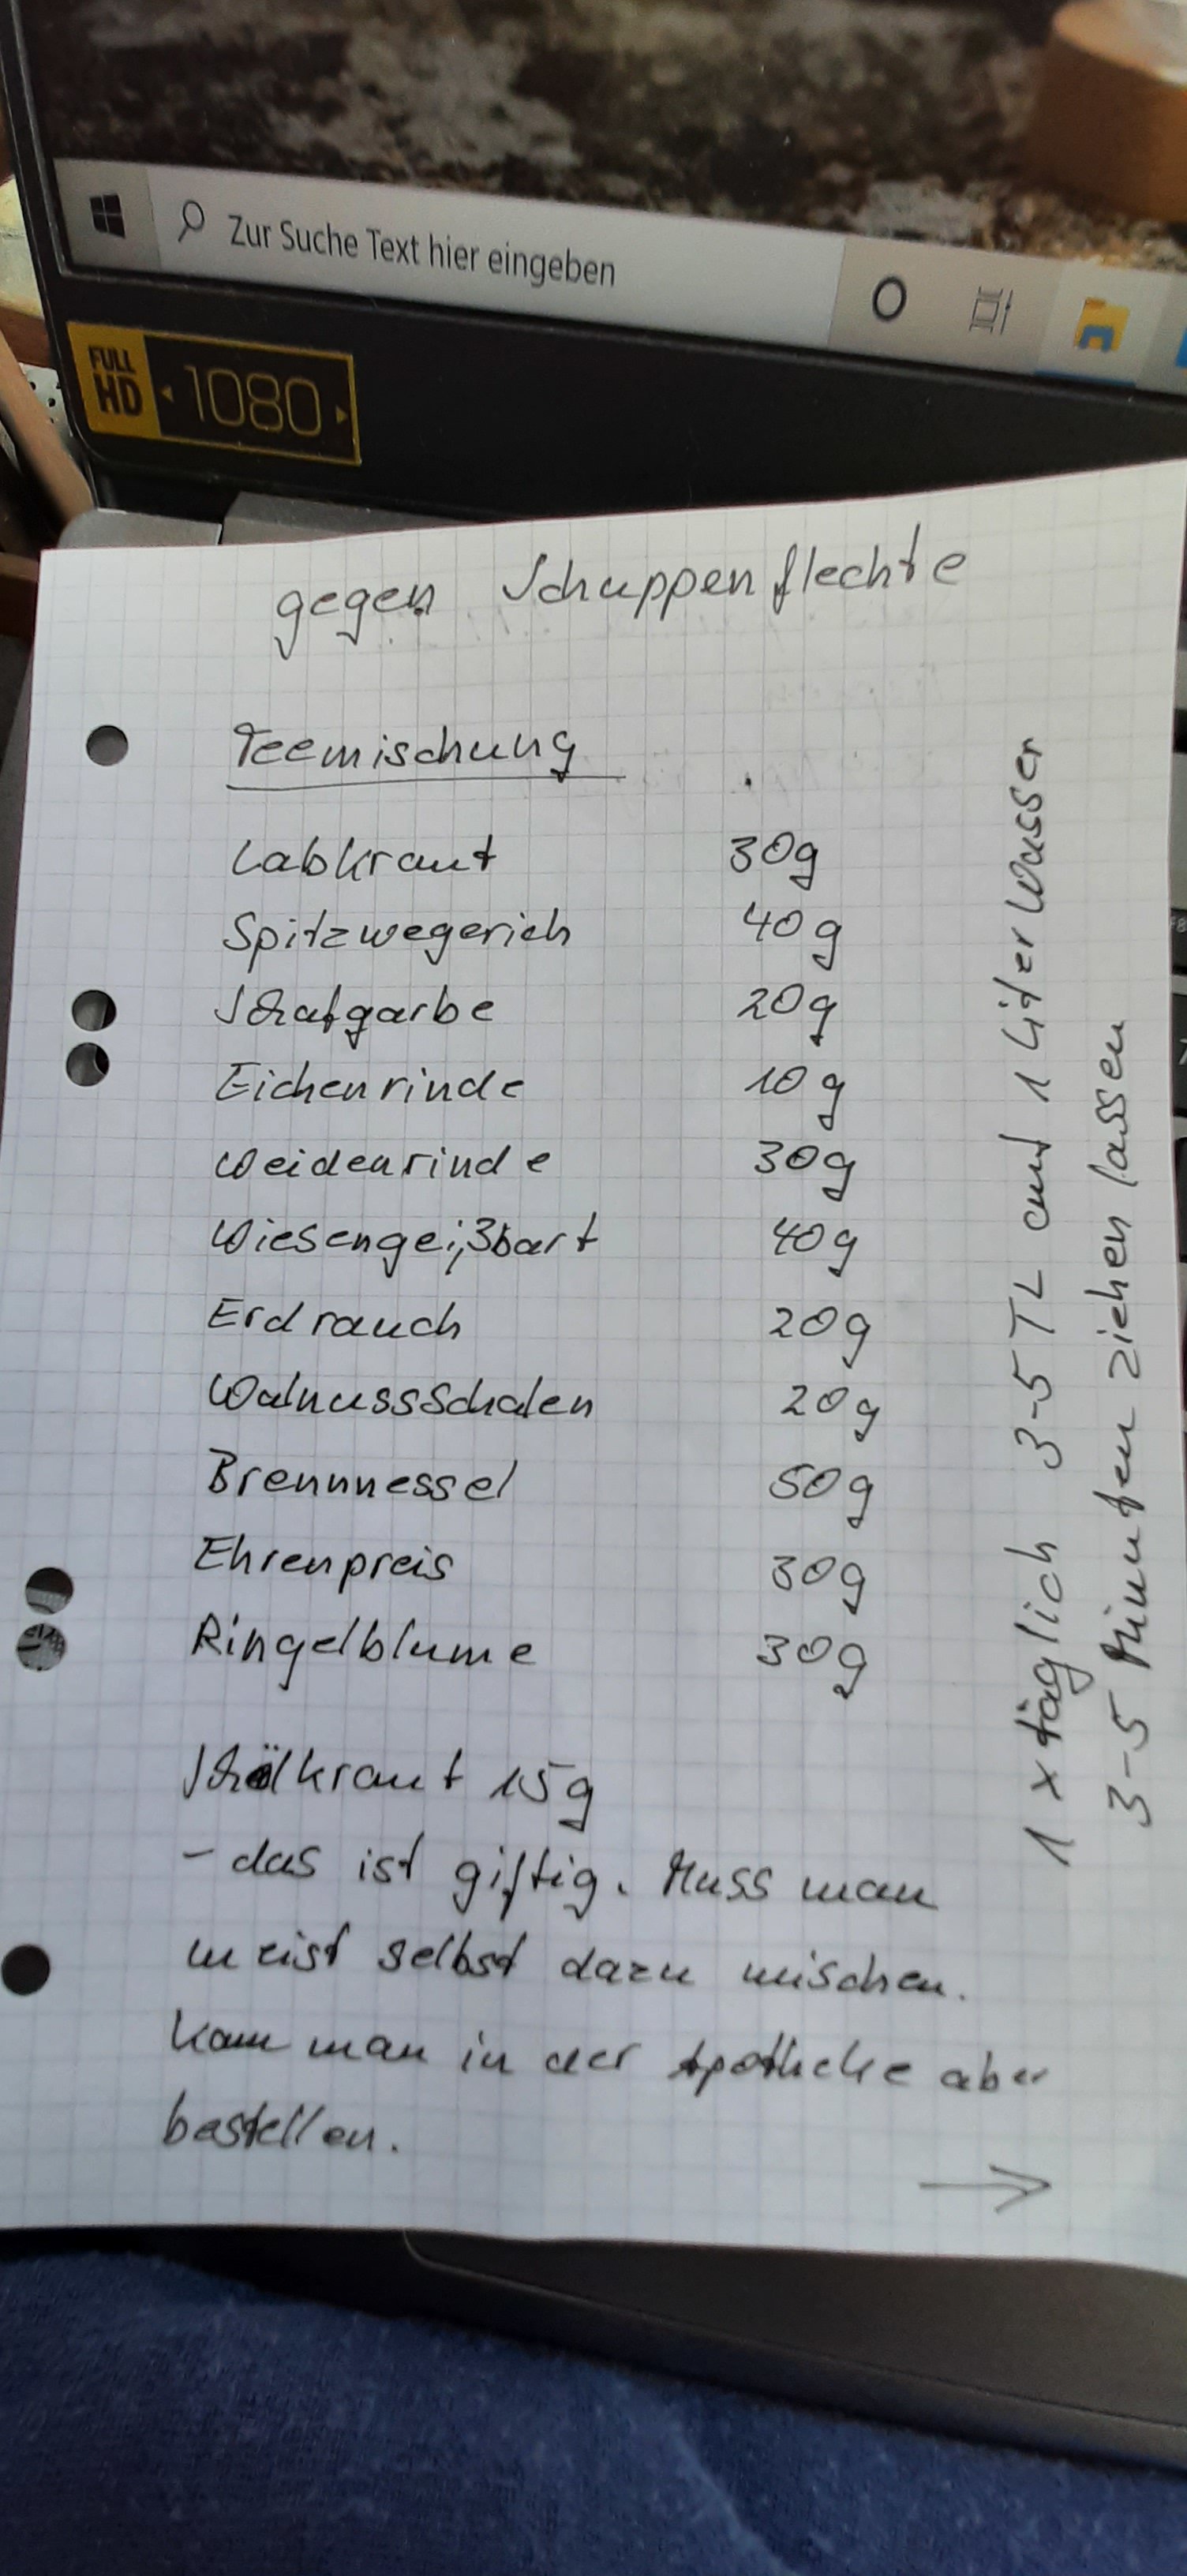 Zur Suche Text hier eingeben
FULL HD 1080
gegen Schuppenflechte
Teemischung
Labkraut 30g
Spitzwegerich 40g
Schafgarbe 20g
Eichenrinde 10g
Weidenrinde 30g
Wiesengeißbart 40g
Erdrauch 20g
Walnussschalen 20g
Brennnessel 50g
Ehrenpreis 30g
Ringelblume 30g
Schölkraut 15g
- das ist giftig. Muss man
meist selbst dazu mischen.
Kann man in der Apotheke aber
bestellen.
→
1 x täglich 3-5 TL auf 1 Liter Wasser
3-5 Minuten ziehen lassen